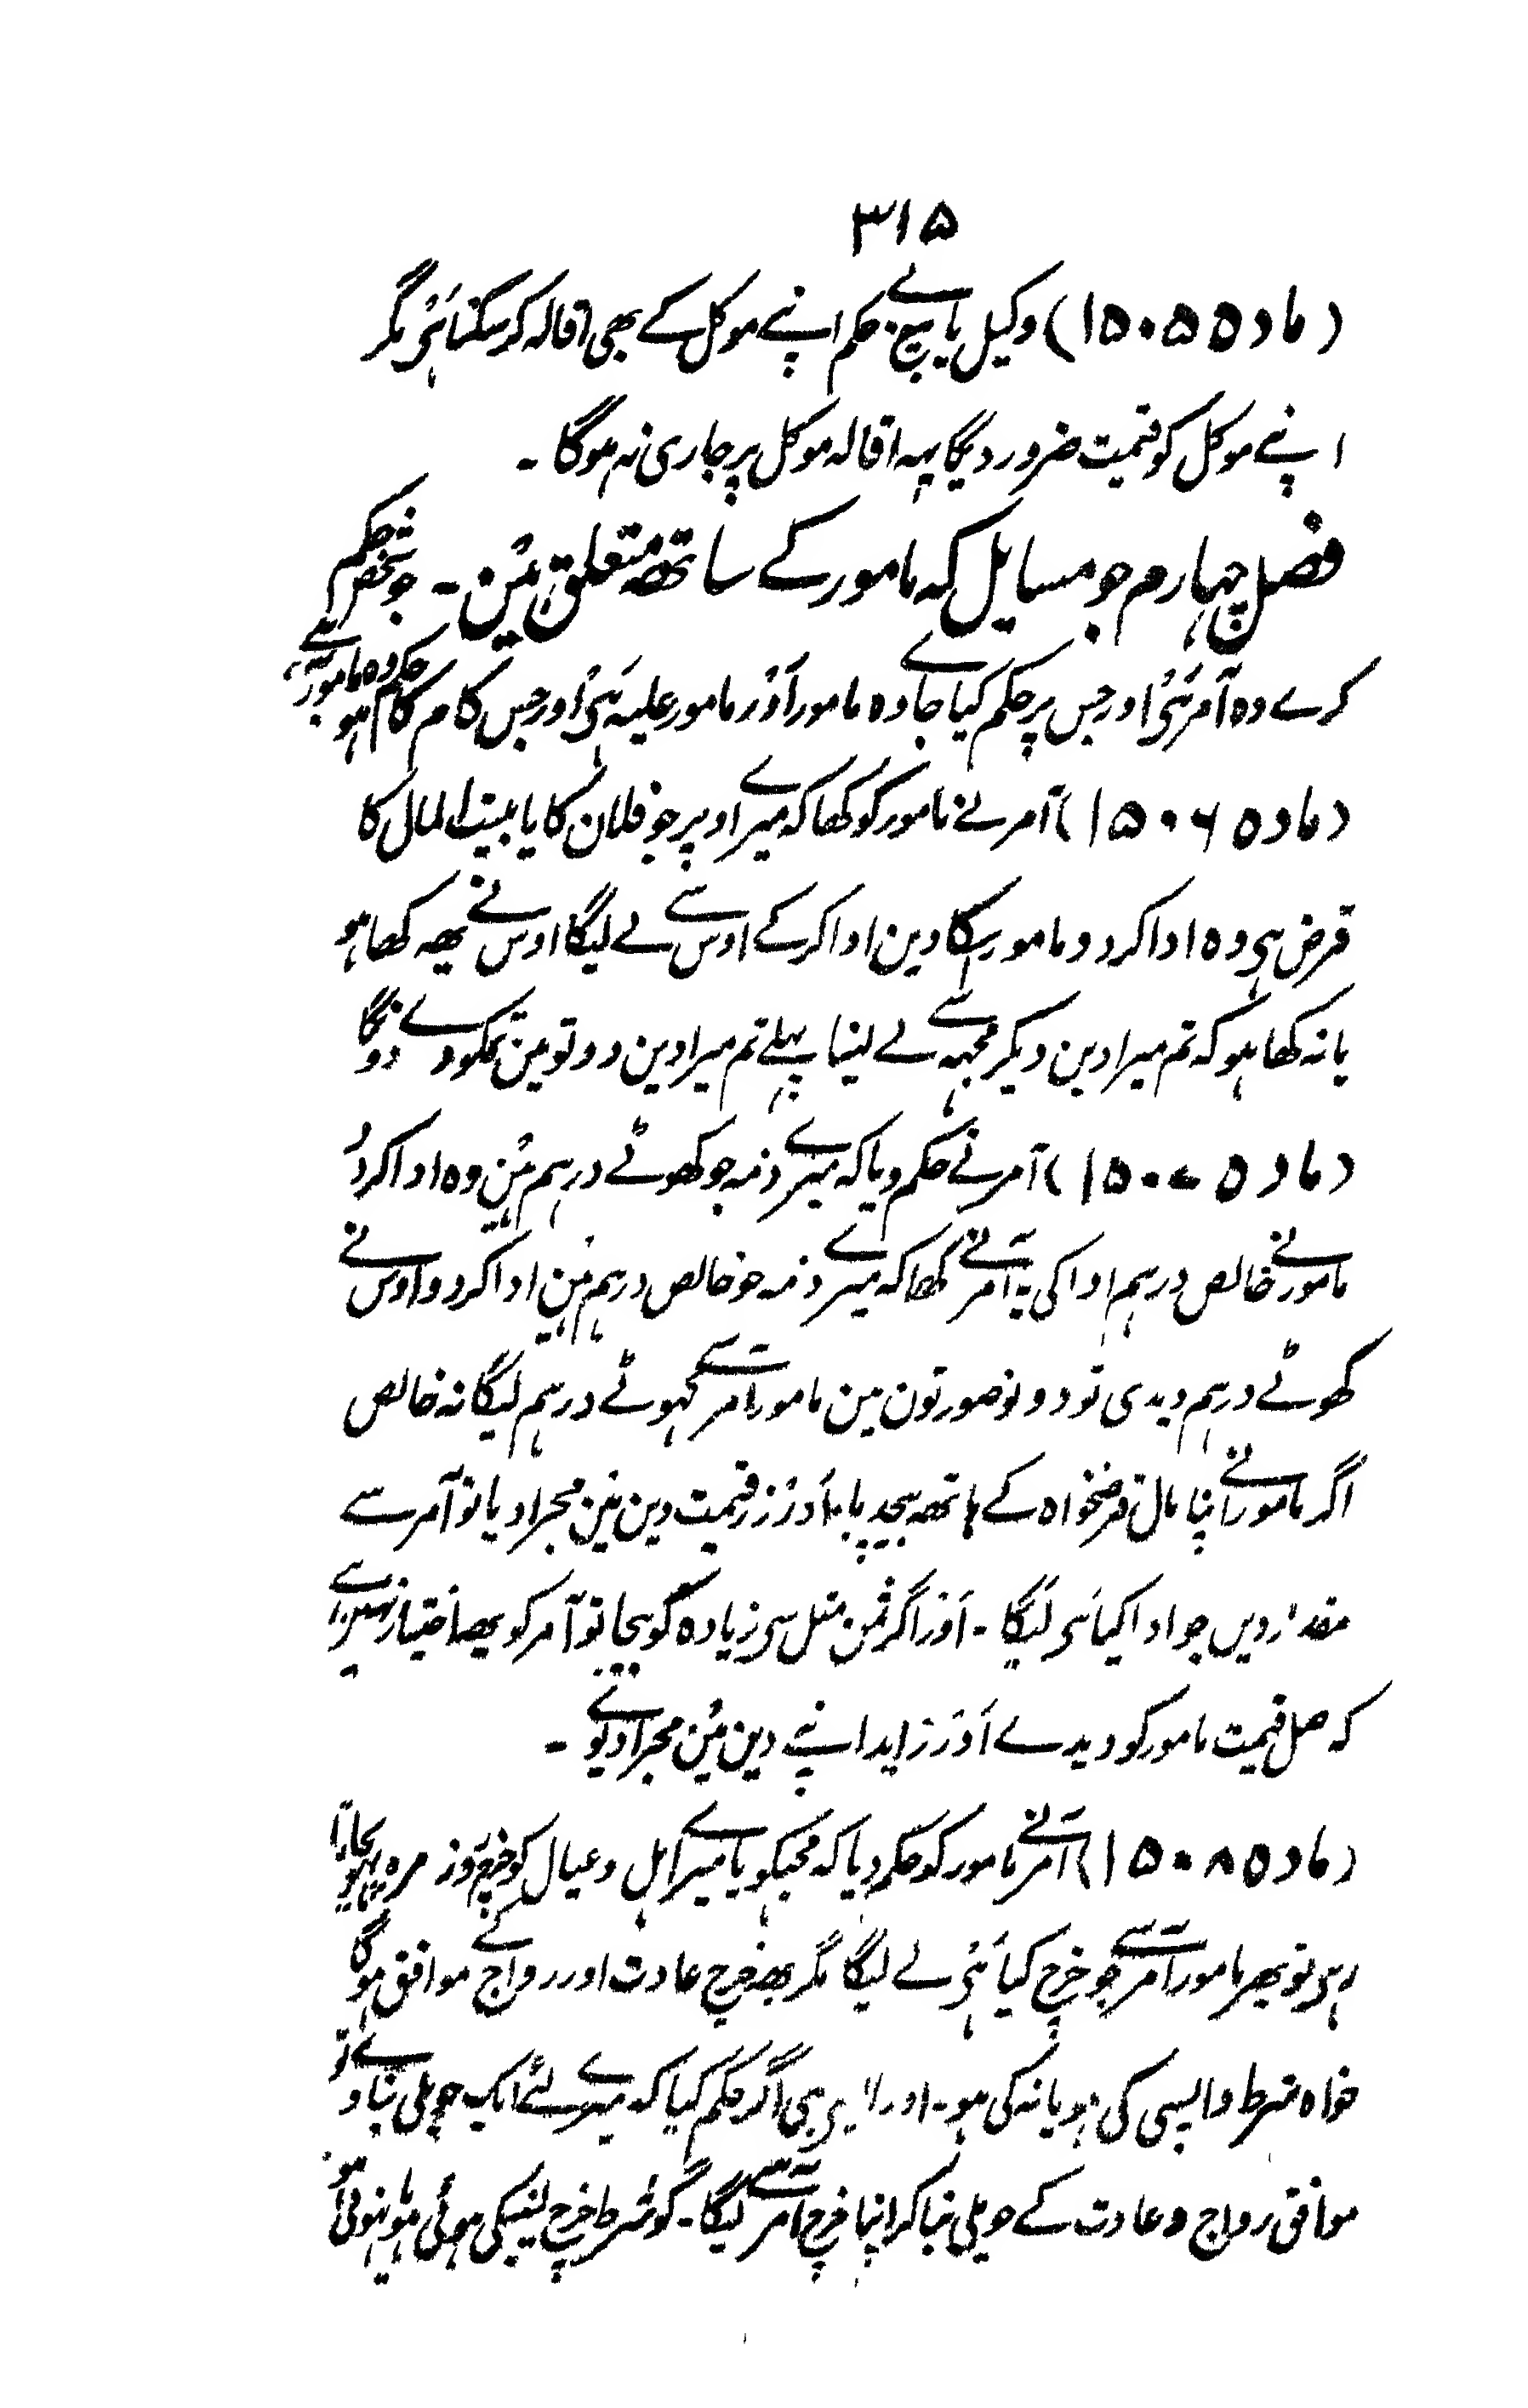 ۳۱۵
(مادہ ۱۵۰۵) وکیل بالبیع بے حکم اپنے موکل کے بھی اقالہ کرسکتا ہی مگر
اپنے موکل کو قیمت ضرور دیگا یہہ اقالہ موکل پر جاری نہ ہوگا ۔
فصل چہارم جو مسایل کہ مامور کے ساتھہ متعلق ہین ۔ جو شخص حکم
کرے وہ آمر ہی اور جس پر حکم کیا جاے وہ مامور اور مامور علیہ ہی اور جس کام کا حکم ہو وہ مامور بہ ہے
(مادہ ۱۵۰۶) آمر نے مامور کو کہا کہ میرے اوپر جو فلان کا یا بیت المال کا
قرض ہی وہ ادا کردو مامور اسکا دین ادا کرکے اوس سے لے لیگا اوس نے یھہ کھا ہو
یا نہ کھا ہو کہ تم میرا دین دیکر مجہہ سے لے لینا پہلے تم میرا دین دو تو مین تمکو دے دونگا
(مادہ ۱۵۰۷) آمر نے حکم دیا کہ میرے ذمہ جو کھوٹے درہم ہین وہ ادا کردو
مامور نے خالص درہم ادا کی یا آمر نے کھا کہ میرے ذمہ جو خالص درہم ہین ادا کردو اوس نے
کھوٹے درہم دیدی تو دونو صورتون مین مامور آمر سے کہوٹے درہم لیگا نہ خالص
اگر مامور نے اپنا مال قرضخواہ کے ہاتھہ بیچدیا اور زر قیمت دین مین مجرا دیا تو آمر سے
مقدار دین جو ادا کیا ہی لیگا ۔ اور اگر ثمن مثل سی زیادہ کو بیچا تو آمر کو یھہ اختیار نہین ہے
کہ اصل قیمت مامور کو دیدے اور زاید اپنے دین مین مجرا دیوے ۔
(مادہ ۱۵۰۸) آمر نے مامور کو حکم دیا کہ مجہکو یا میرے اہل و عیال کو خرچ روز مرہ پہونچاتا
رہی تو پھر مامور آمر سے جو خرچ کیا ہی لے لیگا مگر یھہ خرچ عادت اور رواج کے موافق ہوگا
خواہ شرط واپسی کی ہو یا نہ کی ہو ۔ اور ایسی ہی اگر حکم کیا کہ میرے لئے ایک حویلی بنا دے تو
موافق رواج و عادت کے حویلی بنا کر اپنا خرچ آمر سے لیگا ۔ گو شرط خرچ لینیکی ہوئی ہو یا نہوئی ہو